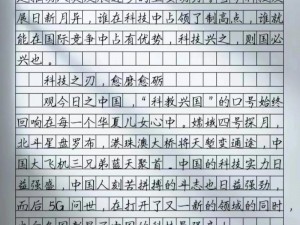 展日新月异，谁在科技中占领了制高点，谁就
能在国际竞争中占有优势，科技兴之，则国必
兴也。
科技之刃，愈磨愈砺
观今日之中国，“科教兴国”的口号始终
回响在每一个华夏儿女心中。嫦娥四号探月，
北斗星盘罗布，港珠澳大桥将天堑变通途，中
国大飞机三兄弟蓝天聚首。中国的科技实力日
益强盛，中国人刻苦拼搏的斗志也日益强劲，
而后5G问世，在打开了又一新的领域的同时，